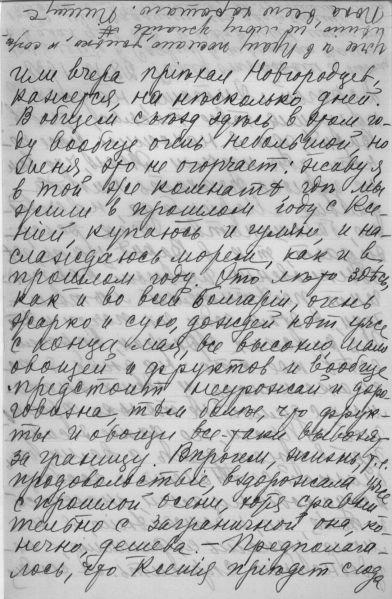 Пока, всего хорошаго. Пишу
или вчера пріѣхал Новгородцев,
кажется, на нѣсколько дней.
В общем съѣзд здѣсь в этом го-
ду вообще очень небольшой, но
меня это не огорчает: живу я
в той же комнатѣ гдѣ мы
жили в прошлом году с Ксе-
ніей, купаюсь и гуляю и на-
слаждаюсь морем, как и в
прошлом году. Это лѣто здѣсь,
как и во всей Болгаріи, очень
жарко и сухо, дождей нѣт уже
с конца мая, все высохло, мало
овощей и фруктов и вообще
предстоит неурожай и доро-
говизна тѣм болѣе, что фрук-
ты и овощи все-таки вывозят
за границу. Впрочем жизнь, т.е.
продовольствіе вздорожала уже
с прошлой осени, хотя сравни-
тельно с заграничной она, ко-
нечно, дешева. — Предполага-
лось, что Ксенія пріѣдет сюда